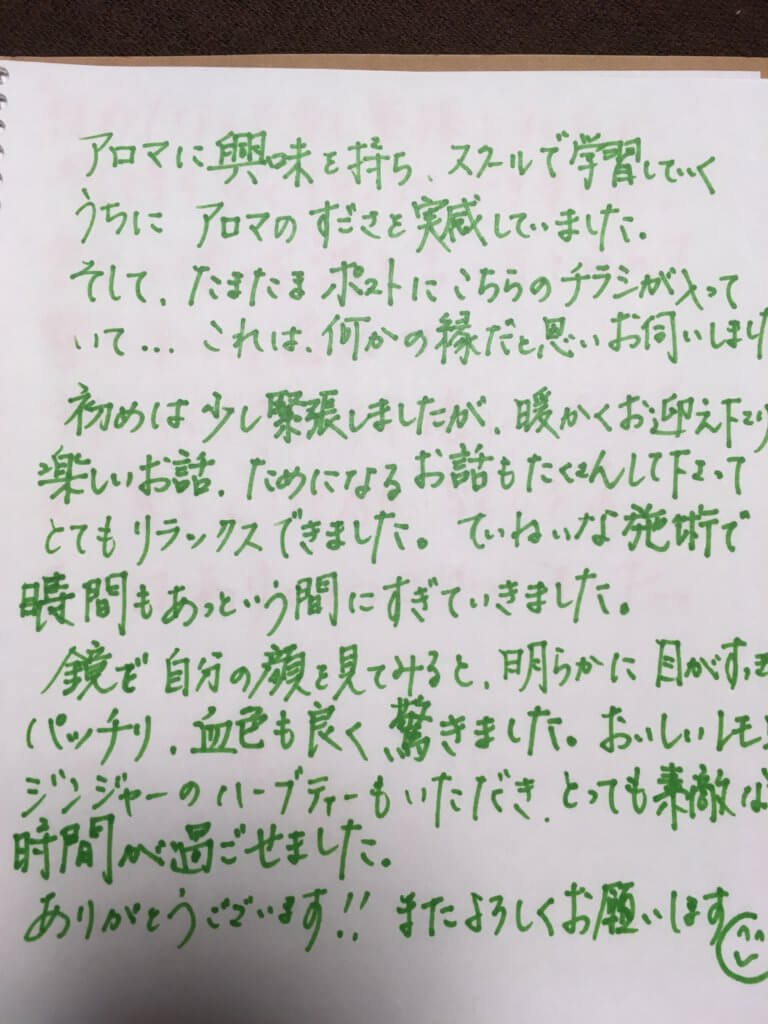 アロマに興味を持ち、スクールで学習していく
うちに アロマのすごさを実感していました。
そして、たまたま ポストにこちらのチラシが入って
いて... これは、何かの縁だと思いお伺いしました
初めは少し緊張しましたが、暖かくお迎え下さり
楽しいお話、ためになるお話もたくさんして下さって
とてもリラックスできました。ていねいな施術で
時間もあっという間にすぎていきました。
鏡で自分の顔を見てみると、明らかに目がすっき
パッチリ、血色も良く驚きました。おいしいレモン
ジンジャーのハーブティーもいただき、とっても素敵な
時間が過ごせました。
ありがとうございます!! またよろしくお願いします